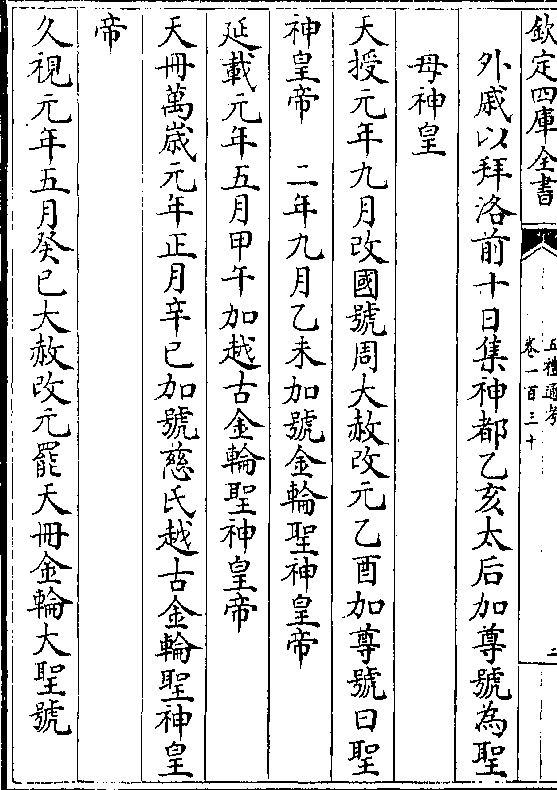 欽定四庫全書
五禮通考
卷一百三十
二
外戚以拜洛前十日集神都乙亥太后加尊號為聖
母神皇
天授元年九月改國號周大赦改元乙酉加尊號曰聖
神皇帝　二年九月乙未加號金輪聖神皇帝
延載元年五月甲午加越古金輪聖神皇帝
天冊萬歳元年正月辛巳加號慈氏越古金輪聖神皇
帝
久視元年五月癸巳大赦改元罷天冊金輪大聖號